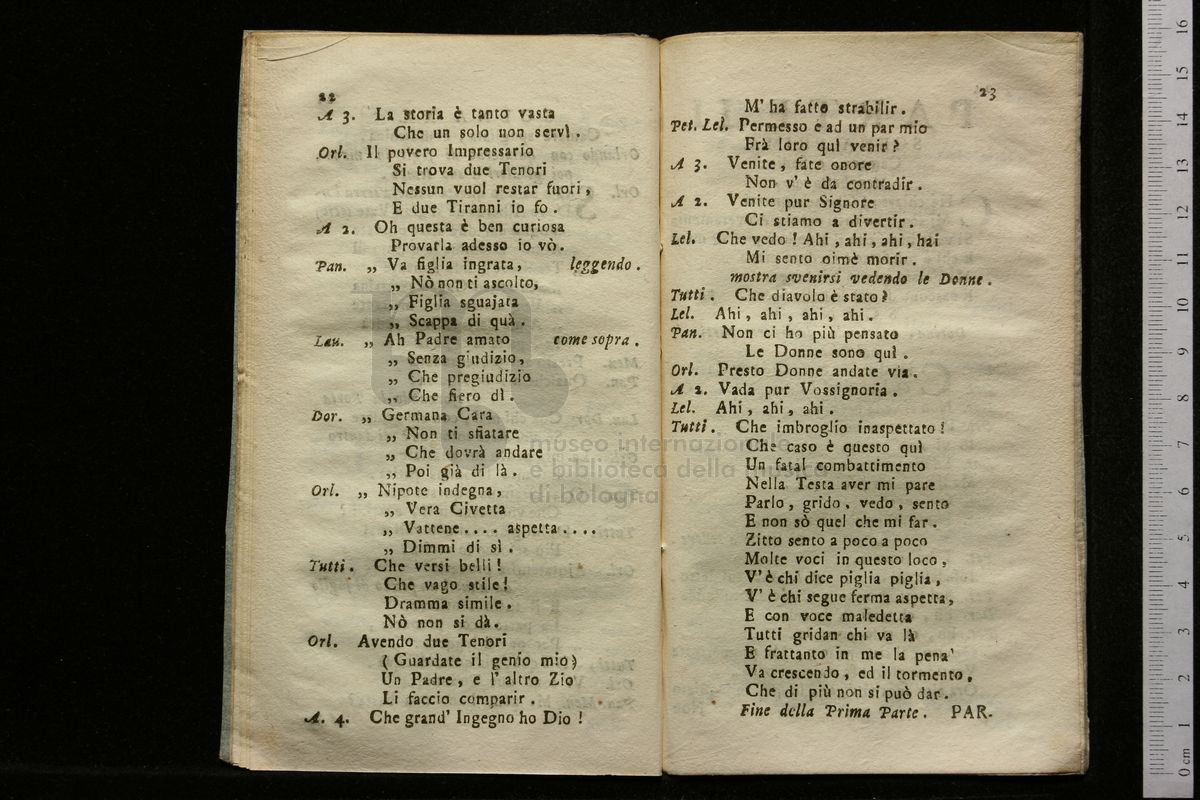 22
A 3. La storia è tanto vasta
Che un solo non servì.
Orl. Il povero Impressario
Si trova due Tenori
Nessun vuol restar fuori,
E due Tiranni io fo.
A 2. Oh questa è ben curiosa
Provarla adesso io vò.
Pan. „ Va figlia ingrata, leggendo.
„ Nò non ti ascolto,
„ Figlia sguajata
„ Scappa di quà.
Lau. „ Ah Padre amato come sopra.
„ Senza giudizio,
„ Che pregiudizio
„ Che fiero dì.
Dor. „ Germana Cara
„ Non ti sfiatare
„ Che dovrà andare
„ Poi già di là.
Orl. „ Nipote indegna,
„ Vera Civetta
„ Vattene.... aspetta....
„ Dimmi di sì.
Tutti. Che versi belli!
Che vago stile!
Dramma simile.
Nò non si dà.
Orl. Avendo due Tenori
(Guardate il genio mio)
Un Padre, e l'altro Zio
Li faccio comparir.
A. 4. Che grand' Ingegno ho Dio!
23
M' ha fatto strabilir.
Pet. Lel. Permesso e ad un par mio
Frà loro quì venir?
A 3. Venite, fate onore
Non v' è da contradir.
A 2. Venite pur Signore
Ci stiamo a divertir.
Lel. Che vedo! Ahi, ahi, ahi, hai
Mi sento oimè morir.
mostra svenirsi vedendo le Donne.
Tutti. Che diavolo è stato?
Lel. Ahi, ahi, ahi, ahi.
Pan. Non ci ho più pensato
Le Donne sono quì.
Orl. Presto Donne andate via.
A 2. Vada pur Vossignoria.
Lel. Ahi, ahi, ahi.
Tutti. Che imbroglio inaspettato!
Che caso è questo quì
Un fatal combattimento
Nella Testa aver mi pare
Parlo, grido, vedo, sento
E non sò quel che mi far.
Zitto sento a poco a poco
Molte voci in questo loco,
V' è chi dice piglia piglia,
V' è chi segue ferma aspetta,
E con voce maledetta
Tutti gridan chi va là
E frattanto in me la pena'
Va crescendo, ed il tormento,
Che di più non si può dar.
Fine della Prima Parte. PAR-
museo internazionale
e biblioteca della musica
di bologna
0 cm 1 2 3 4 5 6 7 8 9 10 11 12 13 14 15 16